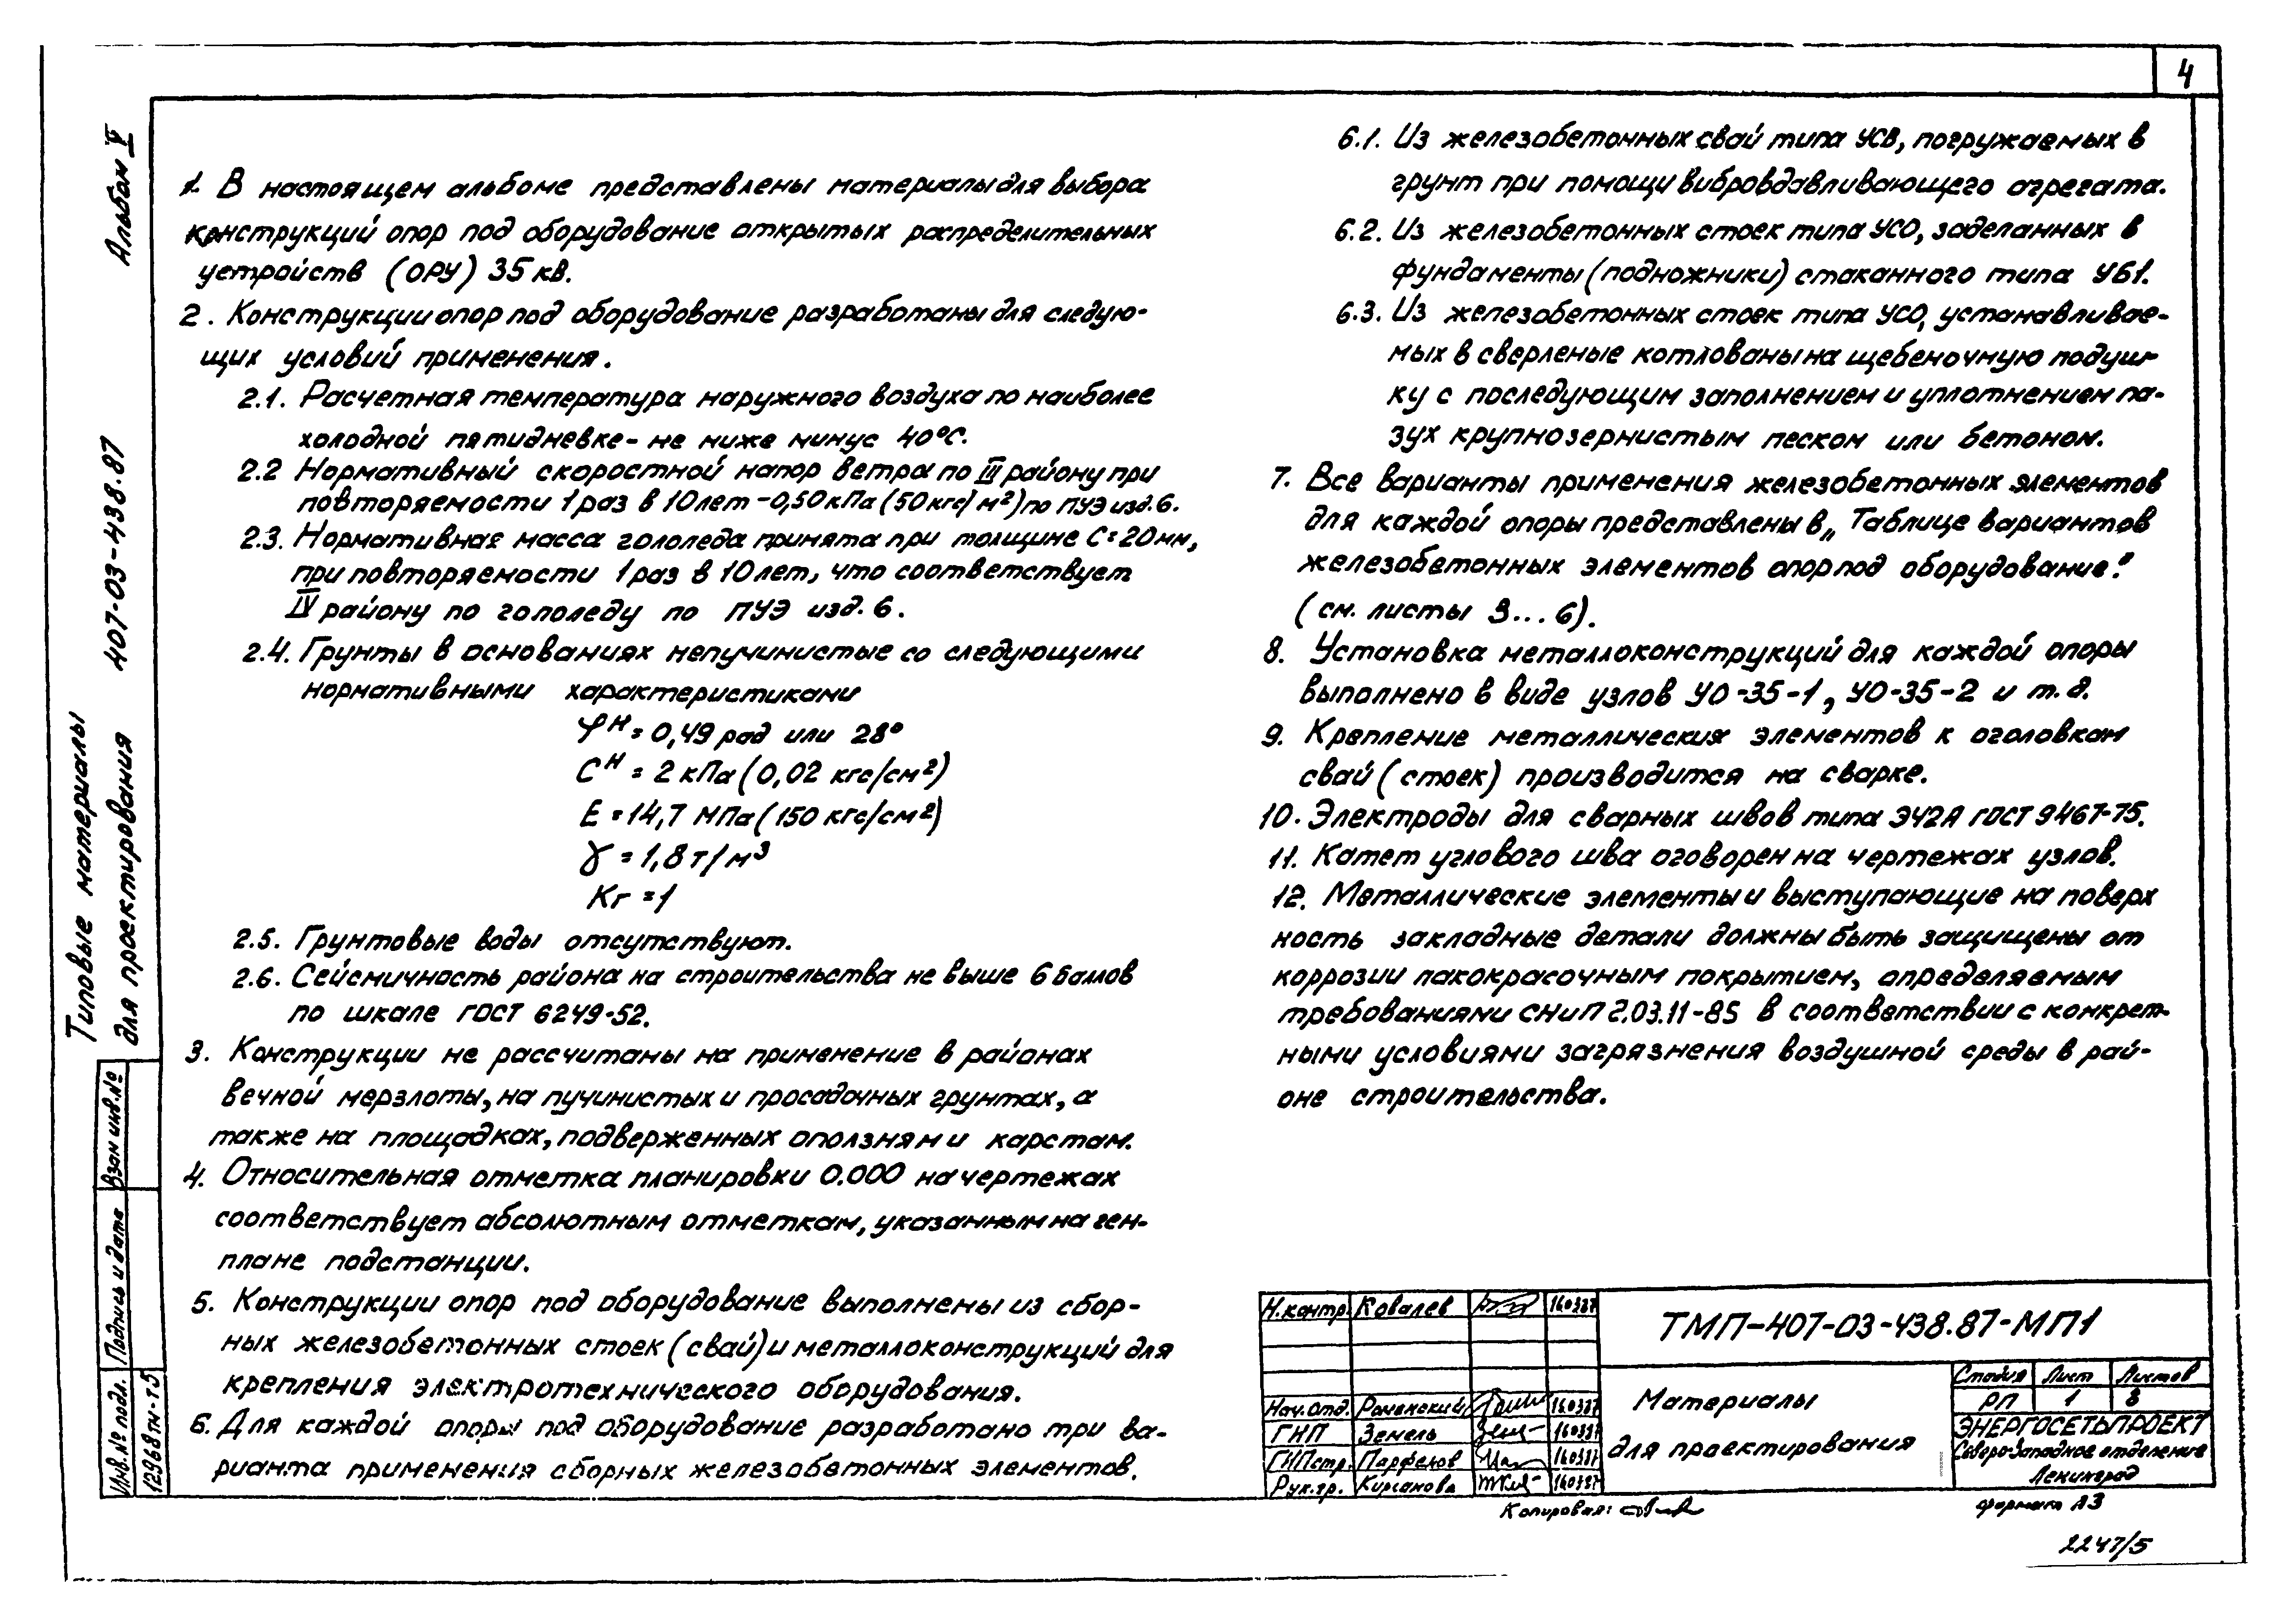 4
Альбом V
407-03-438.87
Типовые материалы
для проектирования
1. В настоящем альбоме представлены материалы для выбора
конструкций опор под оборудование открытых распределительных
устройств (ОРУ) 35 кВ.
2. Конструкции опор под оборудование разработаны для следую-
щих условий применения.
2.1. Расчетная температура наружного воздуха по наиболее
холодной пятидневке - не ниже минус 40°С.
2.2 Нормативный скоростной напор ветра по III району при
повторяемости 1 раз в 10 лет - 0,50 кПа (50 кгс/м²) по ПУЭ изд. 6.
2.3. Нормативная масса гололеда принята при толщине С=20мм,
при повторяемости 1 раз в 10 лет, что соответствует
IV району по гололеду по ПУЭ изд. 6.
2.4. Грунты в основаниях непучинистые со следующими
нормативными характеристиками
φᴴ = 0,49 рад или 28°
Сᴴ = 2 кПа (0,02 кгс/см²)
Е = 14,7 МПа (150 кгс/см²)
γ = 1,8 т/м³
Кг = 1
2.5. Грунтовые воды отсутствуют.
2.6. Сейсмичность района на строительства не выше 6 баллов
по шкале ГОСТ 6249-52.
3. Конструкции не рассчитаны на применение в районах
вечной мерзлоты, на пучинистых и просадочных грунтах, а
также на площадках, подверженных оползням и карстам.
4. Относительная отметка планировки 0.000 на чертежах
соответствует абсолютным отметкам, указанным на ген-
плане подстанции.
5. Конструкции опор под оборудование выполнены из сбор-
ных железобетонных стоек (свай) и металлоконструкций для
крепления электротехнического оборудования.
6. Для каждой опоры под оборудование разработано три ва-
рианта применения сборных железобетонных элементов.
6.1. Из железобетонных свай типа УСВ, погружаемых в
грунт при помощи вибровдавливающего агрегата.
6.2. Из железобетонных стоек типа УСО, заделанных в
фундаменты (подножники) стаканного типа УБ1.
6.3. Из железобетонных стоек типа УСО, устанавливае-
мых в сверленые котлованы на щебеночную подуш-
ку с последующим заполнением и уплотнением па-
зух крупнозернистым песком или бетоном.
7. Все варианты применения железобетонных элементов
для каждой опоры представлены в „Таблице вариантов
железобетонных элементов опор под оборудование."
(см. листы 3...6).
8. Установка металлоконструкций для каждой опоры
выполнено в виде узлов УО-35-1, УО-35-2 и т.д.
9. Крепление металлических элементов к оголовкам
свай (стоек) производится на сварке.
10. Электроды для сварных швов типа Э42А ГОСТ 9467-75.
11. Катет углового шва оговорен на чертежах узлов.
12. Металлические элементы и выступающие на поверх
ность закладные детали должны быть защищены от
коррозии лакокрасочным покрытием, определяемым
требованиями СНиП 2.03.11-85 в соответствии с конкрет-
ными условиями загрязнения воздушной среды в рай-
оне строительства.
Взам инв. №
Подпись и дата
Инв. № подл.
12968тм-т5
Н.контр. Ковалев 160387
Нач.отд. Роменский 160387
ГИП Земель 160387
ГИПстр. Парфенов 160387
Рук.гр. Кирсанова 160387
ТМП-407-03-438.87-МП1
Материалы
для проектирования
Стадия Лист Листов
РП 1 8
ЭНЕРГОСЕТЬПРОЕКТ
Северо-Западное отделение
Ленинград
Копировал:
формат А3
2247/5